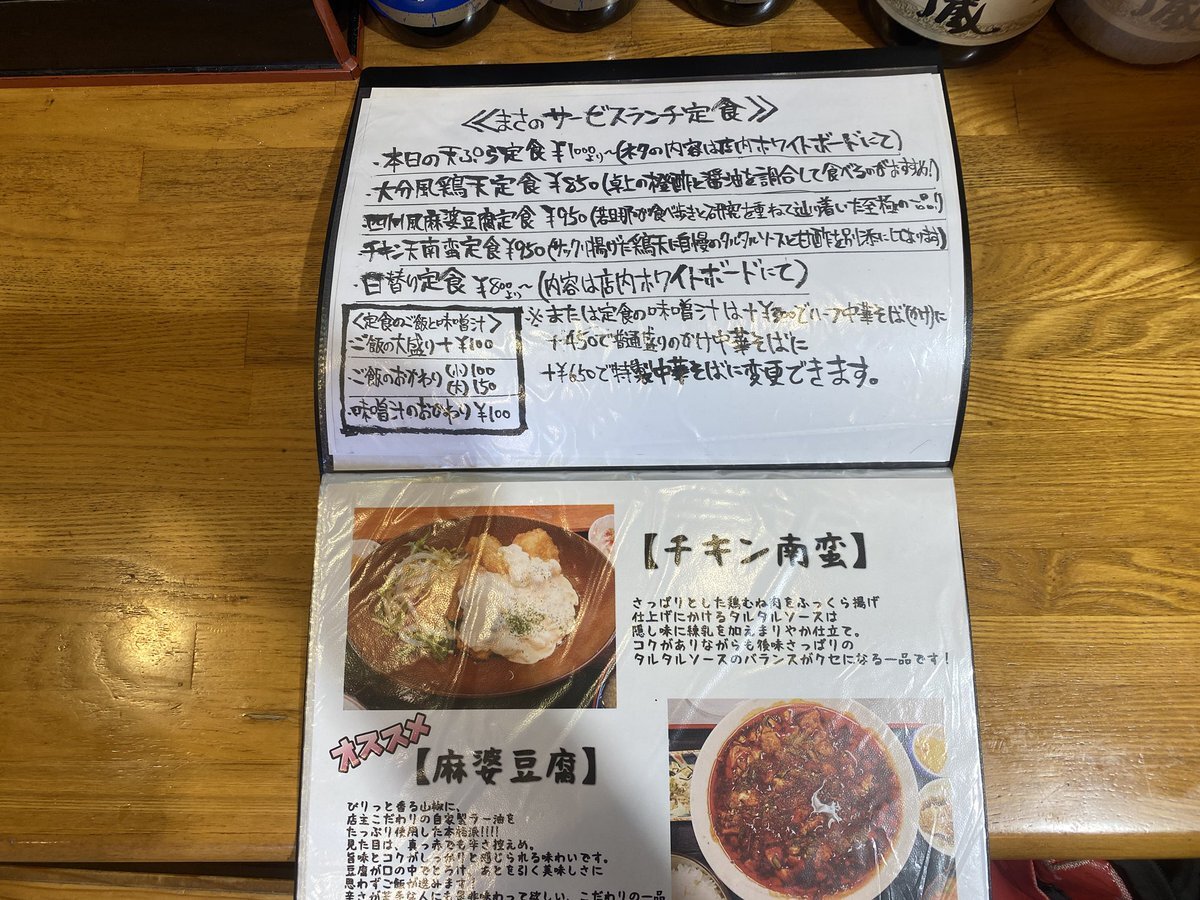 蔵
≪まさのサービスランチ定食≫
・本日の天ぷら定食¥1000より〜(ネタの内容は店内ホワイトボードにて)
大分風鶏天定食¥850(卓上の橙酢と醤油を調合して食べるのがおすすめ!)
四川風麻婆豆腐定食 ¥950(若旦那が食べ歩きと研究を重ねて辿り着いた至極の一品!)
チキン天南蛮定食¥950(サックリ揚げた鶏天に自慢のタルタルソースと甘酢を別添にしております)
・日替り定食¥800より〜(内容は店内ホワイトボードにて)
<定食のご飯と味噌汁>
ご飯の大盛り+¥100
ご飯のおかわり(小)100
(大)150
・味噌汁のおかわり¥100
※または定食の味噌汁は+¥300でハーフ中華そば(かけ)に
+¥450で普通盛りのかけ中華そばに
+¥650で特製中華そばに変更できます。
【チキン南蛮】
さっぱりとした鶏むね肉をふっくら揚げ
仕上げにかけるタルタルソースは
隠し味に練乳を加えまりやか仕立て。
コクがありながらも後味さっぱりの
タルタルソースのバランスがクセになる一品です!
オススメ
【麻婆豆腐】
ぴりっと香る山椒に、
店主こだわりの自家製ラー油を
たっぷり使用した本格派!!!!
見た目は、真っ赤でも辛さ控えめ。
旨味とコクがしっかりと感じられる味わいです。
豆腐が口の中でとろけ、あとを引く美味しさに
思わずご飯が進みます!
辛さが苦手な人にも是非味わって欲しい、こだわりの一品